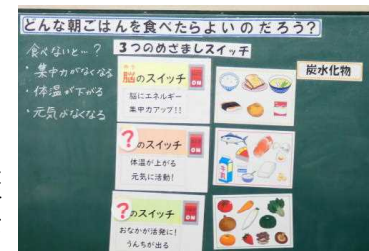 どんな朝ごはんを食べたらよいのだろう?
食べないと…?
・集中力がなくなる
・体温が下がる
・元気がなくなる
3つのめざましスイッチ
脳のスイッチ
ON
脳にエネルギー
集中力アップ!!
炭水化物
?のスイッチ
ON
体温が上がる
元気に活動!
?のスイッチ
ON
おなかが活発に!
うんちが出る